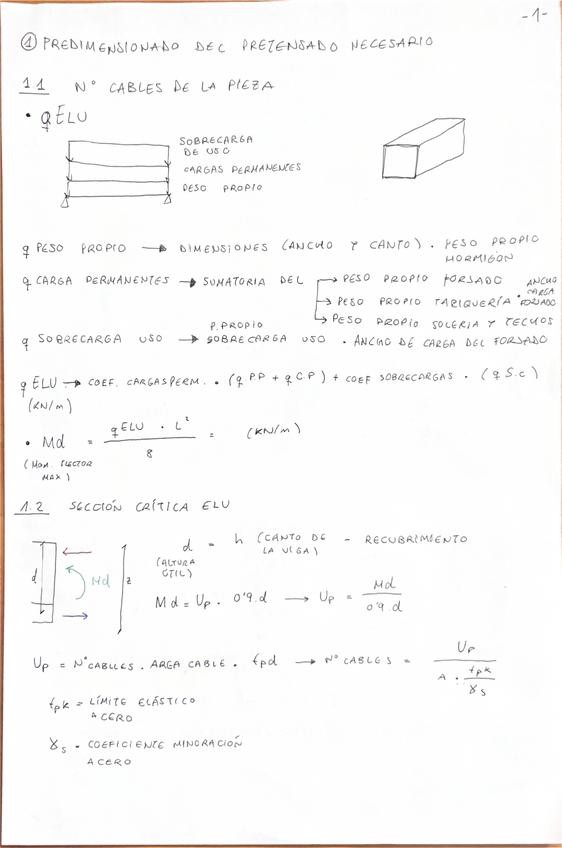 -1-
① PREDIMENSIONADO DEL PRETENSADO NECESARIO
1.1 Nº CABLES DE LA PIEZA
• qELU
SOBRECARGA
DE USO
CARGAS PERMANENTES
PESO PROPIO
q PESO PROPIO → DIMENSIONES (ANCHO Y CANTO) . PESO PROPIO
HORMIGÓN
q CARGA PERMANENTES → SUMATORIA DEL → PESO PROPIO FORJADO
→ PESO PROPIO TABIQUERÍA
→ PESO PROPIO SOLERIA Y TECHOS
. ANCHO
CARGA
FORJADO
P. PROPIO
q SOBRECARGA USO → SOBRECARGA USO . ANCHO DE CARGA DEL FORJADO
q ELU → COEF. CARGAS PERM. . (q P.P + q C.P) + COEF SOBRECARGAS . (q S.C)
(KN/m)
• Md = qELU . L² / 8 = (KN/m)
(MOM. FLECTOR
MAX)
1.2 SECCIÓN CRÍTICA ELU
d Md z
d = h (CANTO DE LA VIGA) - RECUBRIMIENTO
(ALTURA
ÚTIL)
Md = Up . 0'9.d → Up = Md / 0'9.d
Up = Nº CABLLES . AREA CABLE . fpd → Nº CABLES = Up / A . fpk / γs
fpk = LÍMITE ELÁSTICO
ACERO
γs = COEFICIENTE MINORACIÓN
ACERO